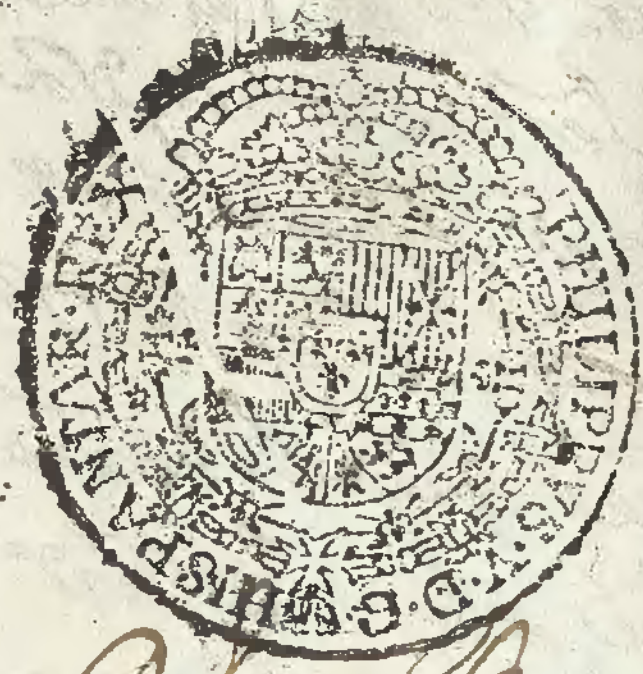 PHILIPPUS·V·D·G· HISPANIAR· REX